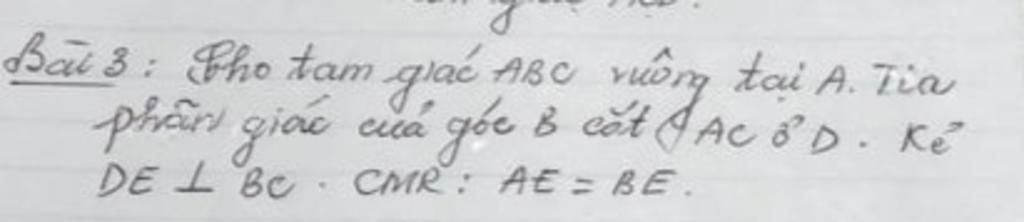 Bài 3: Cho tam giác ABC vuông tại A. Tia
phân giác của góc B cắt AC ở D. Kẻ
DE ⊥ BC. CMR: AE = BE.